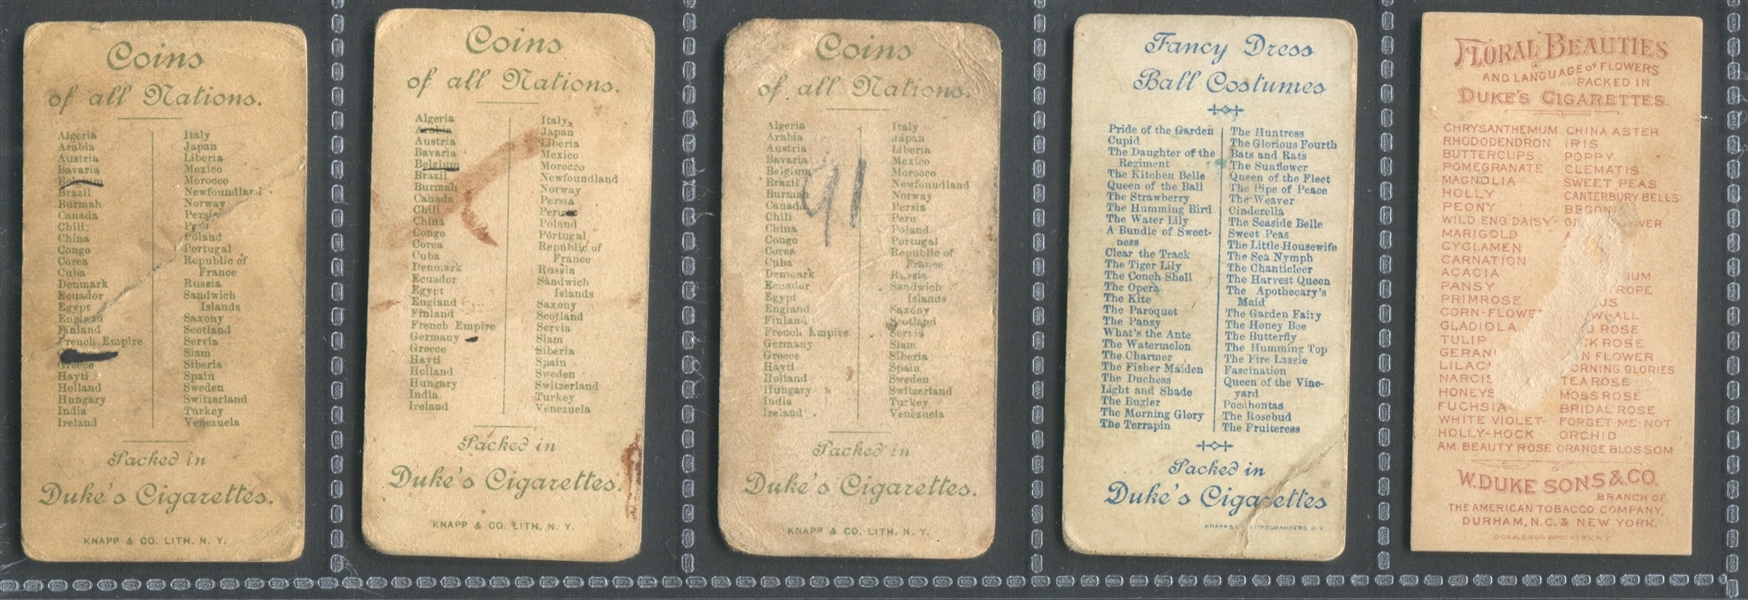 Coins
of all Nations.
Algeria
Arabia
Austria
Bavaria
Belgium
Brazil
Burmah
Canada
Chili
China
Congo
Corea
Cuba
Denmark
Ecuador
Egypt
England
Finland
French Empire
Greece
Hayti
Holland
Hungary
India
Ireland
Italy
Japan
Liberia
Mexico
Morocco
Newfoundland
Norway
Persia
Peru
Poland
Portugal
Republic of
France
Russia
Sandwich
Islands
Saxony
Scotland
Servia
Siam
Siberia
Spain
Sweden
Switzerland
Turkey
Venezuela
Packed in
Duke's Cigarettes.
KNAPP & CO. LITH. N. Y.
Coins
of all Nations.
Algeria
Arabia
Austria
Bavaria
Belgium
Brazil
Burmah
Canada
Chili
China
Congo
Corea
Cuba
Denmark
Ecuador
Egypt
England
Finland
French Empire
Germany
Greece
Hayti
Holland
Hungary
India
Ireland
Italy
Japan
Liberia
Mexico
Morocco
Newfoundland
Norway
Persia
Peru
Poland
Portugal
Republic of
France
Russia
Sandwich
Islands
Saxony
Scotland
Servia
Siam
Siberia
Spain
Sweden
Switzerland
Turkey
Venezuela
Packed in
Duke's Cigarettes.
KNAPP & CO. LITH. N. Y.
Coins
of all Nations.
91
Algeria
Arabia
Austria
Bavaria
Belgium
Brazil
Burmah
Canada
Chili
China
Congo
Corea
Cuba
Denmark
Ecuador
Egypt
England
Finland
French Empire
Germany
Greece
Hayti
Holland
Hungary
India
Ireland
Italy
Japan
Liberia
Mexico
Morocco
Newfoundland
Norway
Persia
Peru
Poland
Portugal
Republic of
France
Russia
Sandwich
Islands
Saxony
Scotland
Servia
Siam
Siberia
Spain
Sweden
Switzerland
Turkey
Venezuela
Packed in
Duke's Cigarettes.
KNAPP & CO. LITH. N. Y.
Fancy Dress
Ball Costumes
Pride of the Garden
Cupid
The Daughter of the
Regiment
The Kitchen Belle
Queen of the Ball
The Strawberry
The Humming Bird
The Water Lily
A Bundle of Sweet-
ness
Clear the Track
The Tiger Lily
The Conch Shell
The Opera
The Kite
The Paroquet
The Pansy
What's the Ante
The Watermelon
The Charmer
The Fisher Maiden
The Duchess
Light and Shade
The Bugler
The Morning Glory
The Terrapin
The Huntress
The Glorious Fourth
Bats and Rats
The Sunflower
Queen of the Fleet
The Pipe of Peace
The Weaver
Cinderella
The Seaside Belle
Sweet Peas
The Little Housewife
The Sea Nymph
The Chanticleer
The Harvest Queen
The Apothecary's
Maid
The Garden Fairy
The Honey Bee
The Butterfly
The Humming Top
The Fire Lassie
Fascination
Queen of the Vine-
yard
Pocahontas
The Rosebud
The Fruiteress
Packed in
Duke's Cigarettes
KNAPP & LITHOGRAPHERS N.Y.
FLORAL BEAUTIES
AND LANGUAGE OF FLOWERS
PACKED IN
DUKE'S CIGARETTES.
CHRYSANTHEMUM
RHODODENDRON
BUTTERCUPS
POMEGRANATE
MAGNOLIA
HOLLY
PEONY
WILD ENG. DAISY
MARIGOLD
CYGLAMEN
CARNATION
ACACIA
PANSY
PRIMROSE
CORN-FLOWER
GLADIOLA
TULIP
GERAN
LILAC
NARCIS
HONEYS
FUCHSIA
WHITE VIOLET
HOLLY-HOCK
AM. BEAUTY ROSE
CHINA ASTER
IRIS
POPPY
CLEMATIS
SWEET PEAS
CANTERBURY BELLS
BEGON
OWER
A
IUM
ROPE
US
WBALL
D ROSE
CK ROSE
N FLOWER
ORNING GLORIES
TEA ROSE
MOSS ROSE
BRIDAL ROSE
FORGET-ME-NOT
ORCHID
ORANGE BLOSSOM
W. DUKE SONS & CO.
BRANCH OF
THE AMERICAN TOBACCO COMPANY,
DURHAM, N.C. & NEW YORK.
DONALDSON BROTHERS, N.Y.